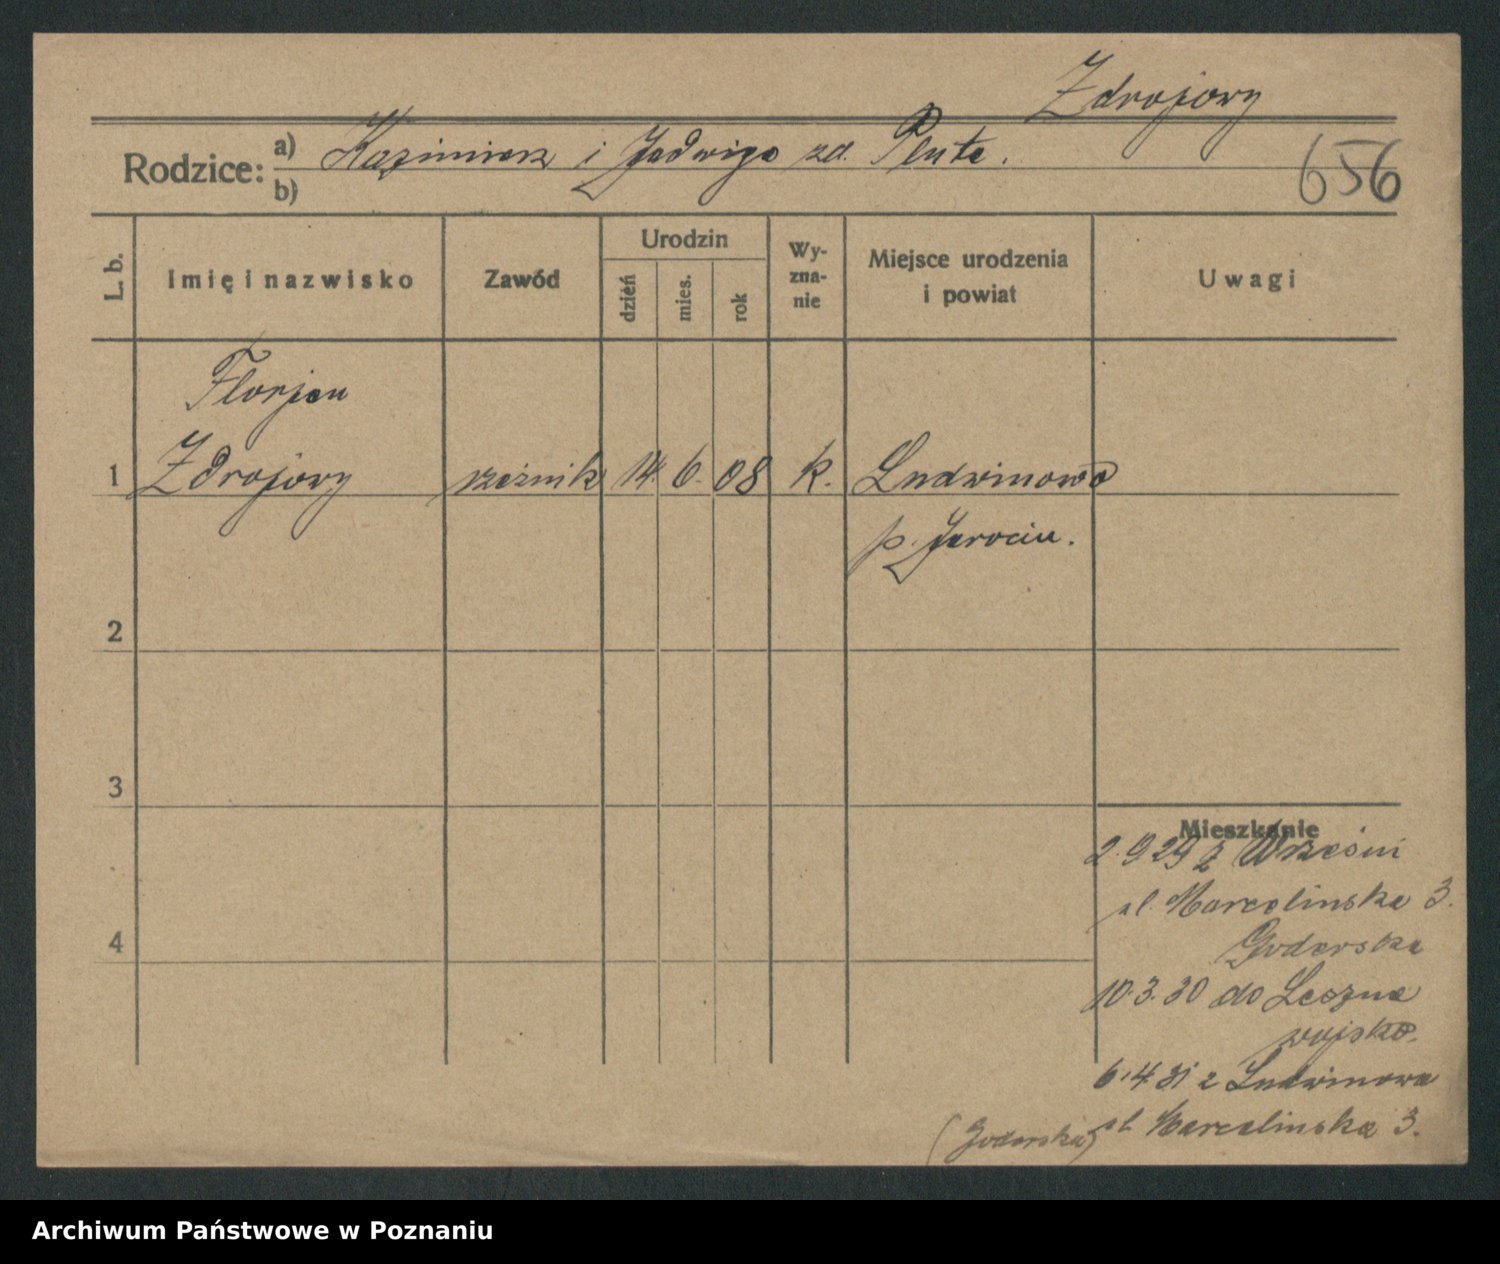 Zdrojowy
Rodzice: a) Kazimierz i Jadwiga zd. Pluta.
b)
656
L. b.
Imię i nazwisko
Zawód
Urodzin
dzień
mies.
rok
Wy-
zna-
nie
Miejsce urodzenia
i powiat
Uwagi
Florjan
1 Zdrojowy rzeźnik 14. 6. 08 k. Ludwinowo
p. Jarocin.
2
3
Mieszkanie
2.9 29 z Wrześni
ul. Marcelinska 3.
4
Goderska
10.3.30 do Leszna
wojsko.
6.4 31 z Ludwinowa
(Goderska) ul Marcelinska 3.
Archiwum Państwowe w Poznaniu